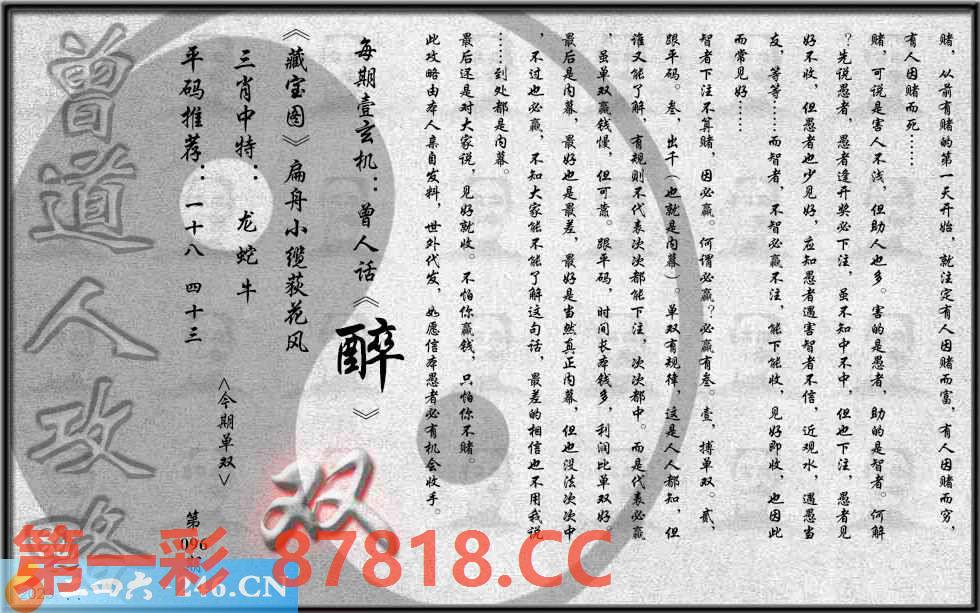 赌，从前有赌的第一天开始，就注定有人因赌而富，有人因赌而穷，
有人因赌而死……
赌，可说是害人不浅，但助人也多。害的是愚者，助的是智者。何解
？先说愚者，愚者逢开奖必下注，虽不知中不中，但也下注，愚者见
好不收，但愚者也少见好，应知愚者遇害智者不信，近观水，遇愚当
友，等等……而智者，不智必赢不注，能下能收，见好即收，也因此
而常见好……
智者下注不算赌，因必赢。何谓必赢？必赢有叁。壹，搏单双。贰，
跟平码。叁，出千（也就是内幕）。单双有规律，这是人人都知，但
谁又能了解，有规则不代表次次都能下注，次次都中。而是代表必赢
，虽单双赢钱慢，但可靠。跟平码，时间长本钱多，利润比单双好。
最后是内幕，最好也是最差，最好是当然真正内幕，但也没法次次中
，不过也必赢，不知大家能不能了解这句话，最差的相信也不用我说
……到处都是内幕。
最后还是对大家说，见好就收。不怕你赢钱，只怕你不赌。
此攻略由本人亲自发料，世外代发，如愿信本愚者必有机会收手。
每期壹玄机：曾人话《醉》
《藏宝图》扁舟小缆荻花风
三肖中特：龙蛇牛
平码推荐：一十八 四十三
<今期单双>
双
第096期
曾道人攻略
第一彩 87818.CC
二四六 246.CN